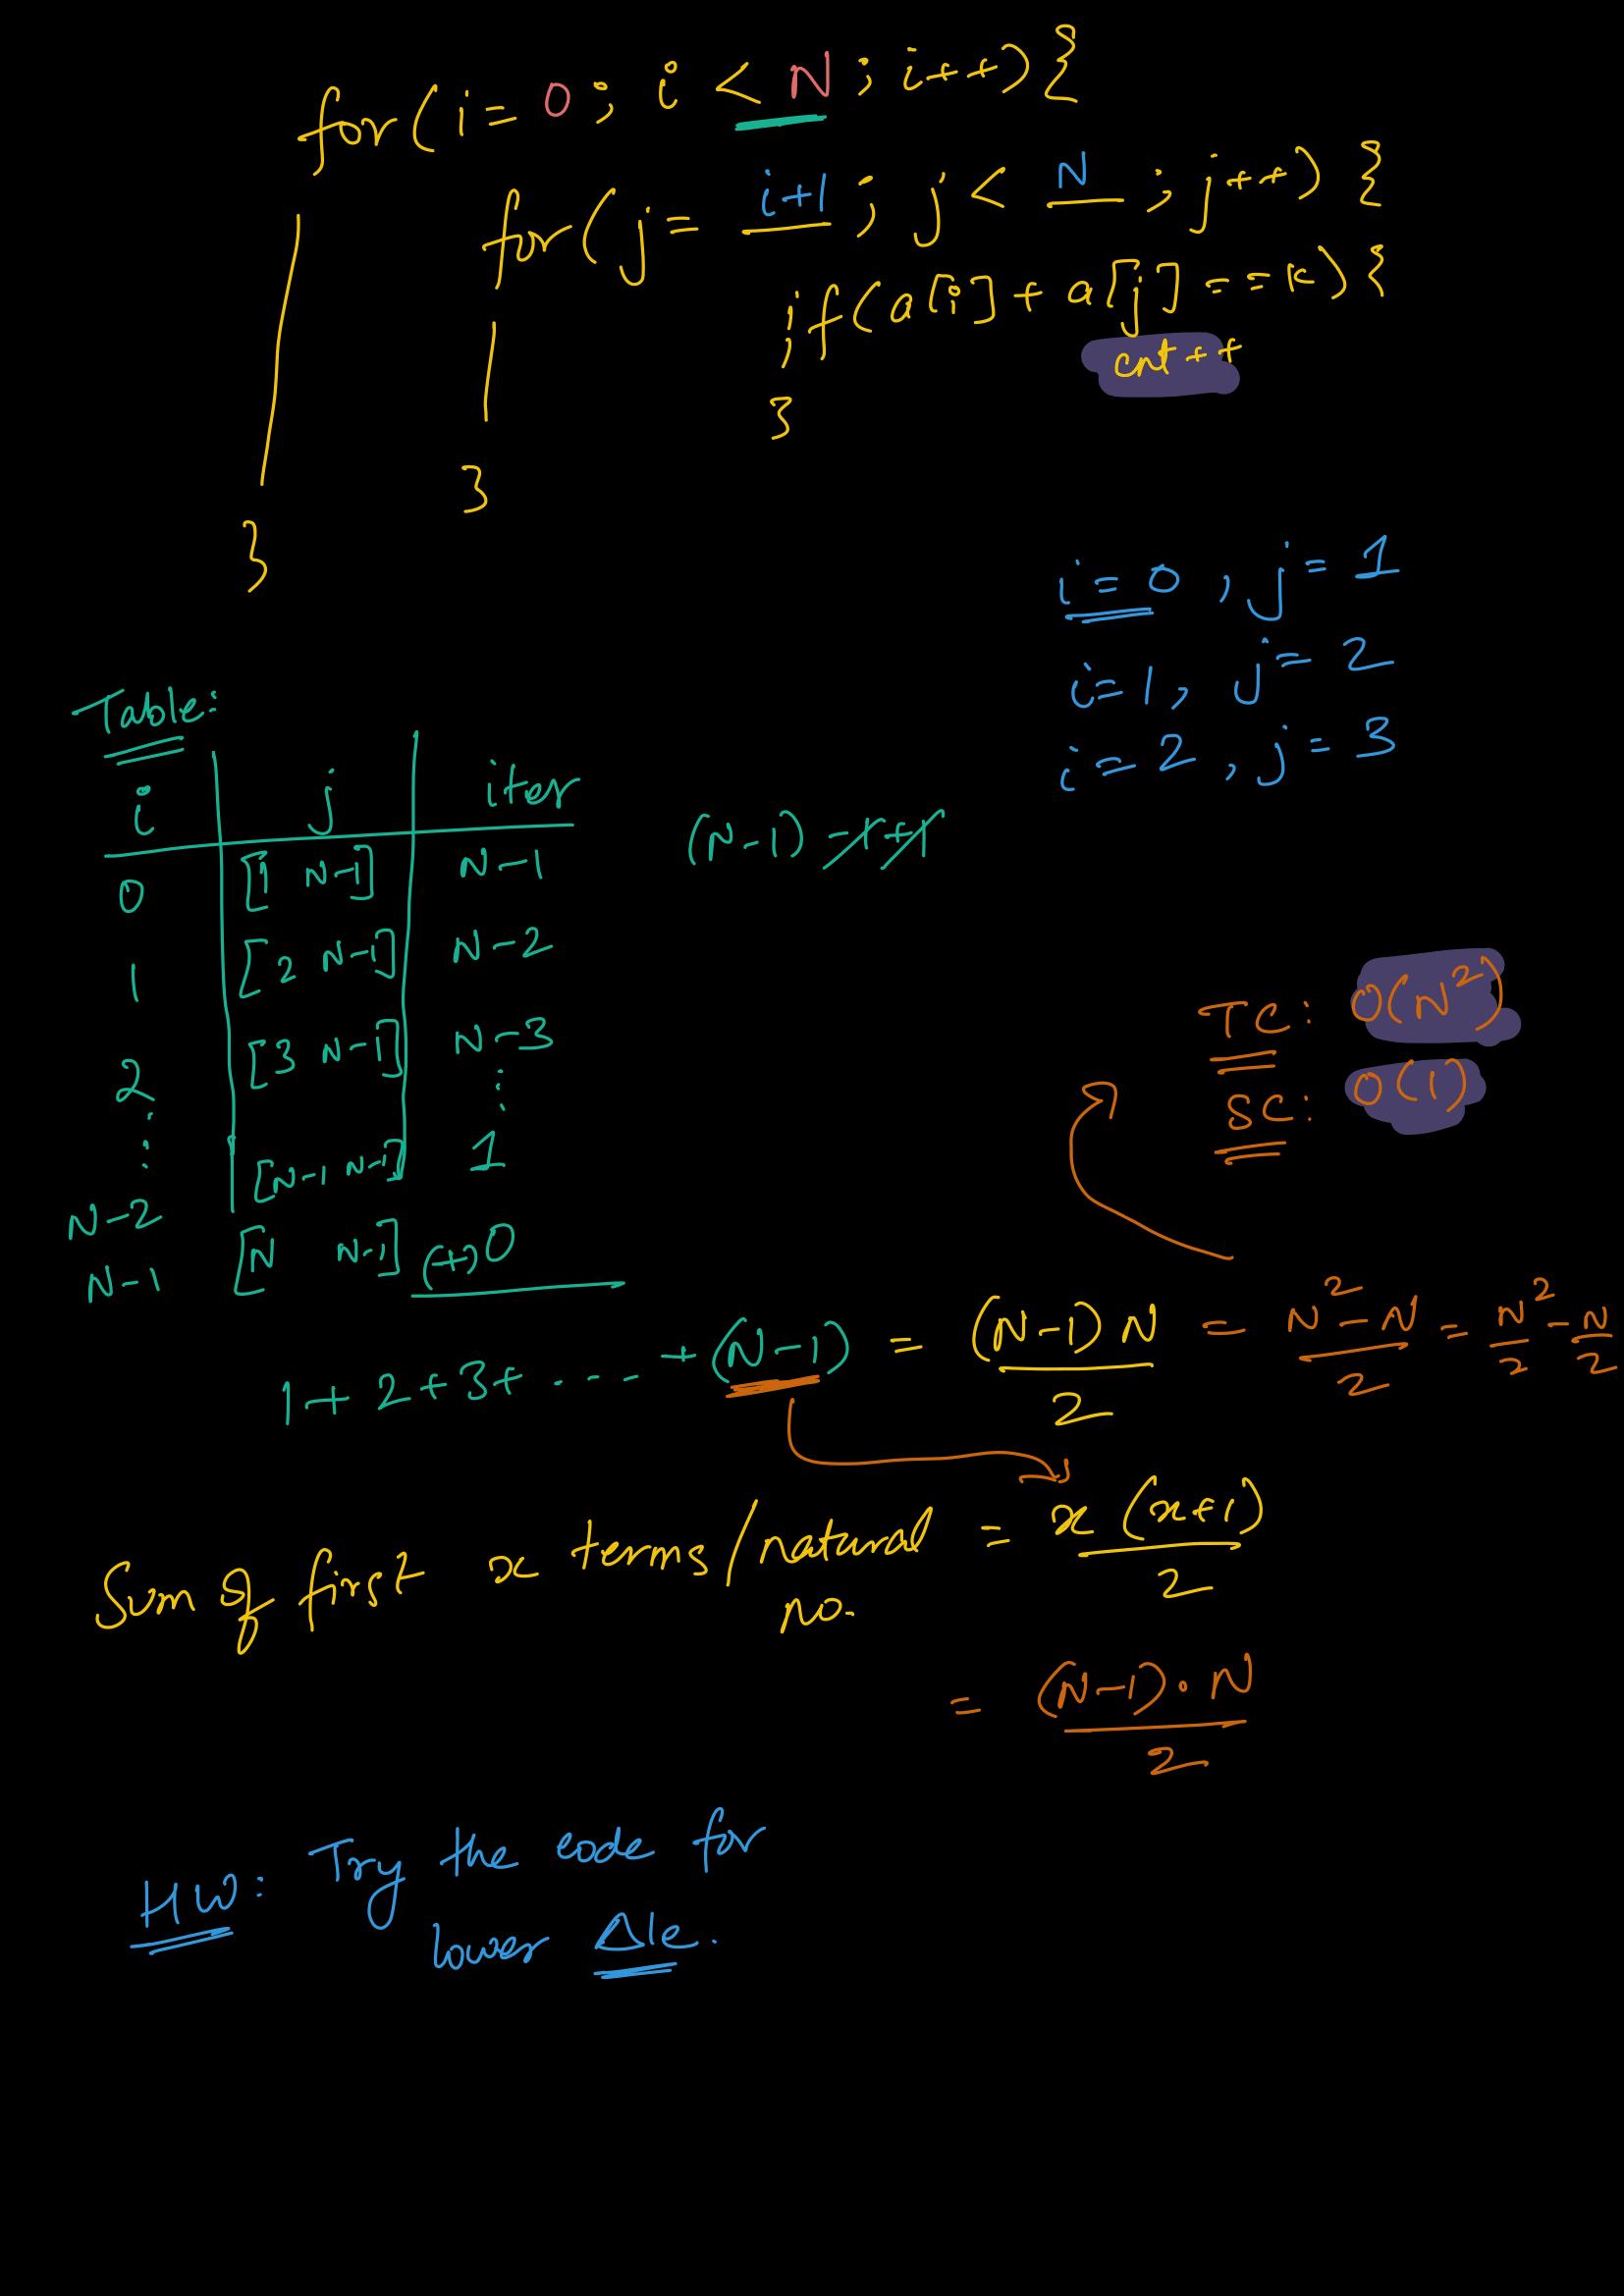 for(i = 0; i < N; i++){
for(j = i+1; j < N; j++) {
if(a[i] + a[j] == k){
cnt++
}
}
}
i = 0, j = 1
i = 1, j = 2
i = 2, j = 3
Table:
i j iter
0 [1 N-1] N-1 (N-1) -1+1
1 [2 N-1] N-2
2 [3 N-1] N-3
⋮ ⋮
N-2 [N-1 N-1] 1
N-1 [N N-1] (+) 0
TC: O(N²)
SC: O(1)
1 + 2 + 3 + .... + (N-1) = (N-1) N / 2 = N² - N / 2 = N²/2 - N/2
Sum of first x terms/natural no. = x (x+1) / 2
= (N-1) . N / 2
HW: Try the code for
lower Δle.